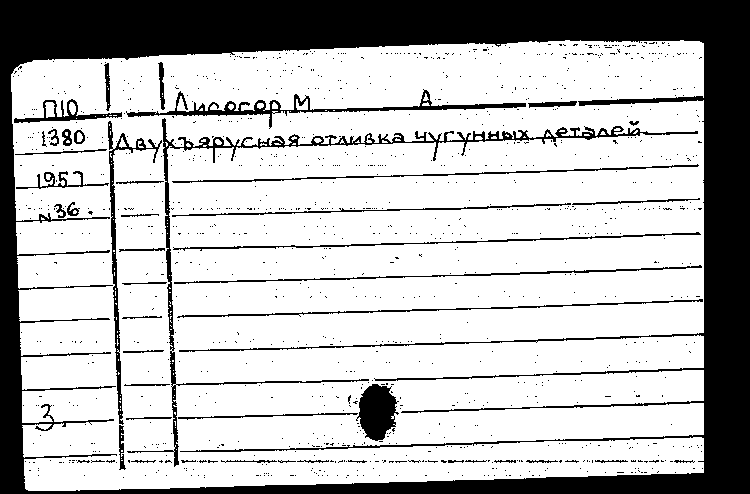 П10 Лисогор М А
1380 Двухъярусная отливка чугунных деталей
1957
N 36.
3.